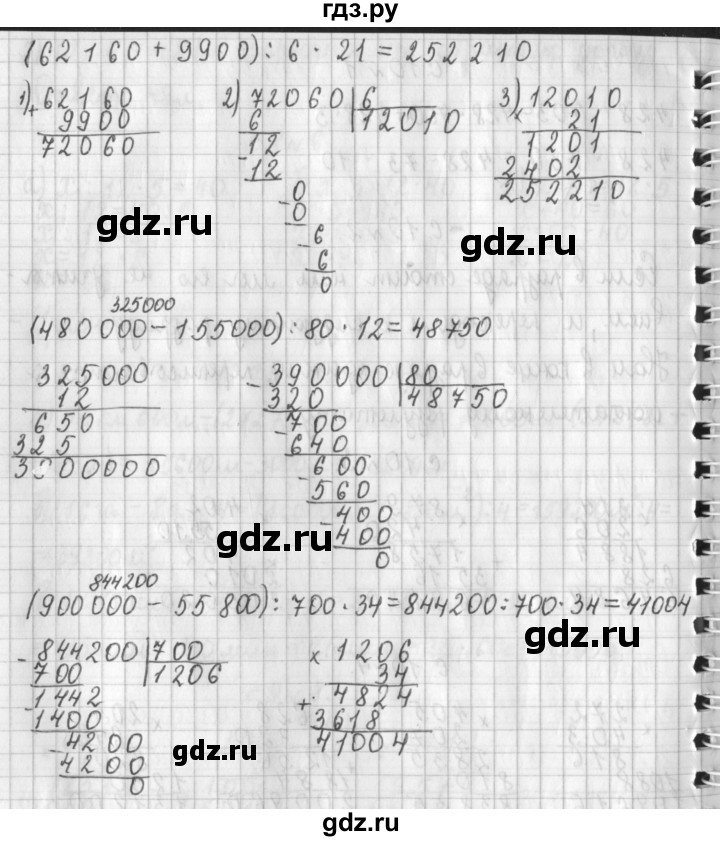 гдз.ру
(62160 + 9900) : 6 · 21 = 252210
1) + 62160
9900
72060
2) 72060 | 6
6
12010
12
- 12
0
- 0
6
- 6
0
3) 12010
× 21
1201
2402
252210
gdz.ru
gdz.ru
325000
(480000 - 155000) : 80 · 12 = 48750
325000
12
650
325
3900000
- 390000 | 80
320
48750
- 700
640
- 600
560
- 400
400
0
gdz.ru
gdz.ru
844200
(900000 - 55800) : 700 · 34 = 844200 : 700 · 34 = 41004
gdz.ru
- 844200 | 700
700
1206
- 1442
1400
- 4200
4200
0
× 1206
34
+ 4824
3618
41004
gdz.ru
gdz.ru